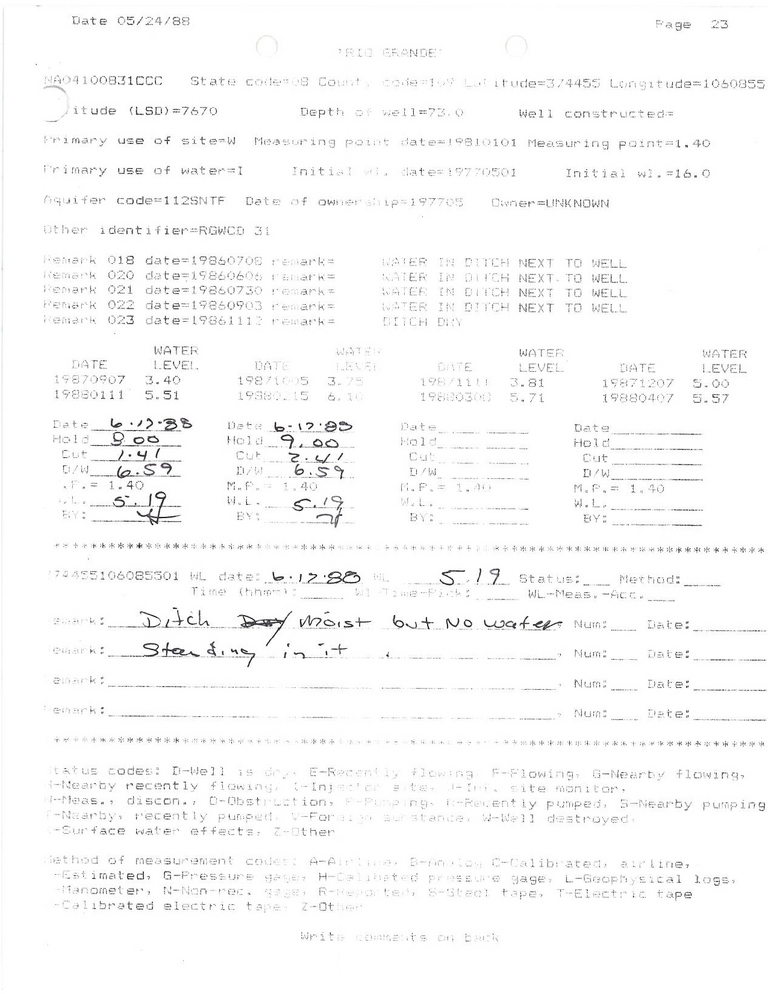 Date 05/24/88 Page 23
'RIO GRANDE'
NA04100831CCC State code=08 County code=109 Latitude=374455 Longitude=1060855
itude (LSD)=7670 Depth of well=73.0 Well constructed=
Primary use of site=W Measuring point date=19810101 Measuring point=1.40
Primary use of water=I Initial wl. date=19770501 Initial wl.=16.0
Aquifer code=112SNTF Date of ownership=197705 Owner=UNKNOWN
Other identifier=RGWCD 31
Remark 018 date=19860708 remark= WATER IN DITCH NEXT TO WELL
Remark 020 date=19860606 remark= WATER IN DITCH NEXT TO WELL
Remark 021 date=19860730 remark= WATER IN DITCH NEXT TO WELL
Remark 022 date=19860903 remark= WATER IN DITCH NEXT TO WELL
Remark 023 date=19861112 remark= DITCH DRY
WATER WATER WATER WATER
DATE LEVEL DATE LEVEL DATE LEVEL DATE LEVEL
19870907 3.40 19871005 3.75 19871111 3.81 19871207 5.00
19880111 5.51 19880215 19880308 5.71 19880407 5.57
Date 6-17-88 Date 6-17-88 Date Date
Hold 8.00 Hold 9.00 Hold Hold
Cut 1.41 Cut 2.41 Cut Cut
D/W 6.59 D/W 6.59 D/W D/W
.P.= 1.40 M.P.= 1.40 M.P.= 1.40 M.P.= 1.40
.L. 5.19 W.L. 5.19 W.L. W.L.
BY: BY: BY: BY:
************************************************************
374455106085501 WL date: 6-17-88 WL 5.19 Status: Method:
Time (hhmm): Wl-Time-Pick: WL-Meas.-Acc.
emark: Ditch Dry Moist but No water Num: Date:
emark: Standing in it . Num: Date:
emark: Num: Date:
emark: Num: Date:
************************************************************
Status codes: D-Well is dry, E-Recently flowing, F-Flowing, G-Nearby flowing,
H-Nearby recently flowing, I-Injector site, J-Inj. site monitor,
N-Meas., discon., O-Obstruction, P-Pumping, R-Recently pumped, S-Nearby pumping
T-Nearby, recently pumped, V-Foreign substance, W-Well destroyed,
-Surface water effects, Z-Other
Method of measurement codes: A-Airline, B-Analog C-Calibrated, airline,
-Estimated, G-Pressure gage, H-Calibrated pressure gage, L-Geophysical logs,
-Manometer, N-Non-rec. gage, R-Reported, S-Steel tape, T-Electric tape
-Calibrated electric tape, Z-Other
Write comments on back